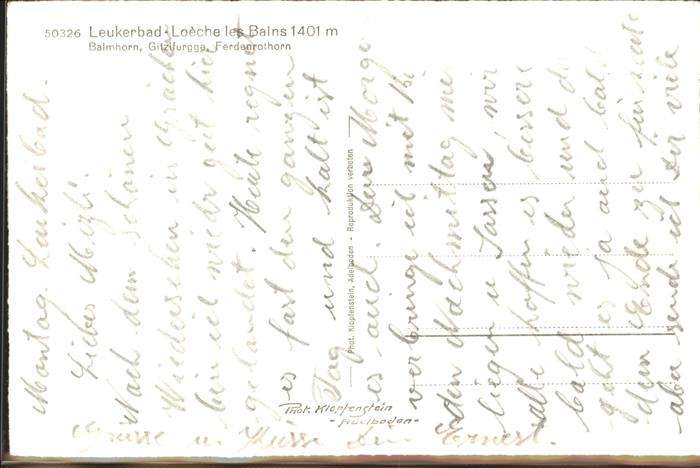 50326 Leukerbad-Loèche les Bains 1401 m
Balmhorn, Gitzifurgge, Ferdenrothorn
Montag. Leukerbad.
Liebes
Nach dem schönen
Wiedersehen in Grächen
bin ich wieder gut hier
gelandet. Heute regnet
es fast den ganzen
Tag und kalt ist
es auch. Den Morge
verbringe ich mit
den Nachmittag mi
liegen u Jassen wir
alle hoffen es bessere
bald wieder und
geht es ja auch bald
dem Ende zu für
aber sende ich Dir viele
Grüsse u Küsse Dein Ernest.
Phot. Klopfenstein, Adelboden - Reproduktion verboten
Phot. Klopfenstein
- Adelboden -